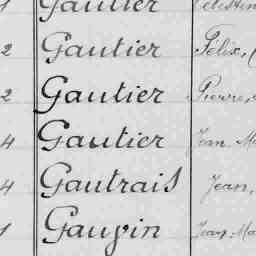 1 Gautier Célestin
2 Gautier Félix, (
2 Gautier Pierre,
4 Gautier Jean Ma
4 Gautrais Jean,
1 Gauvin Jean-Ma